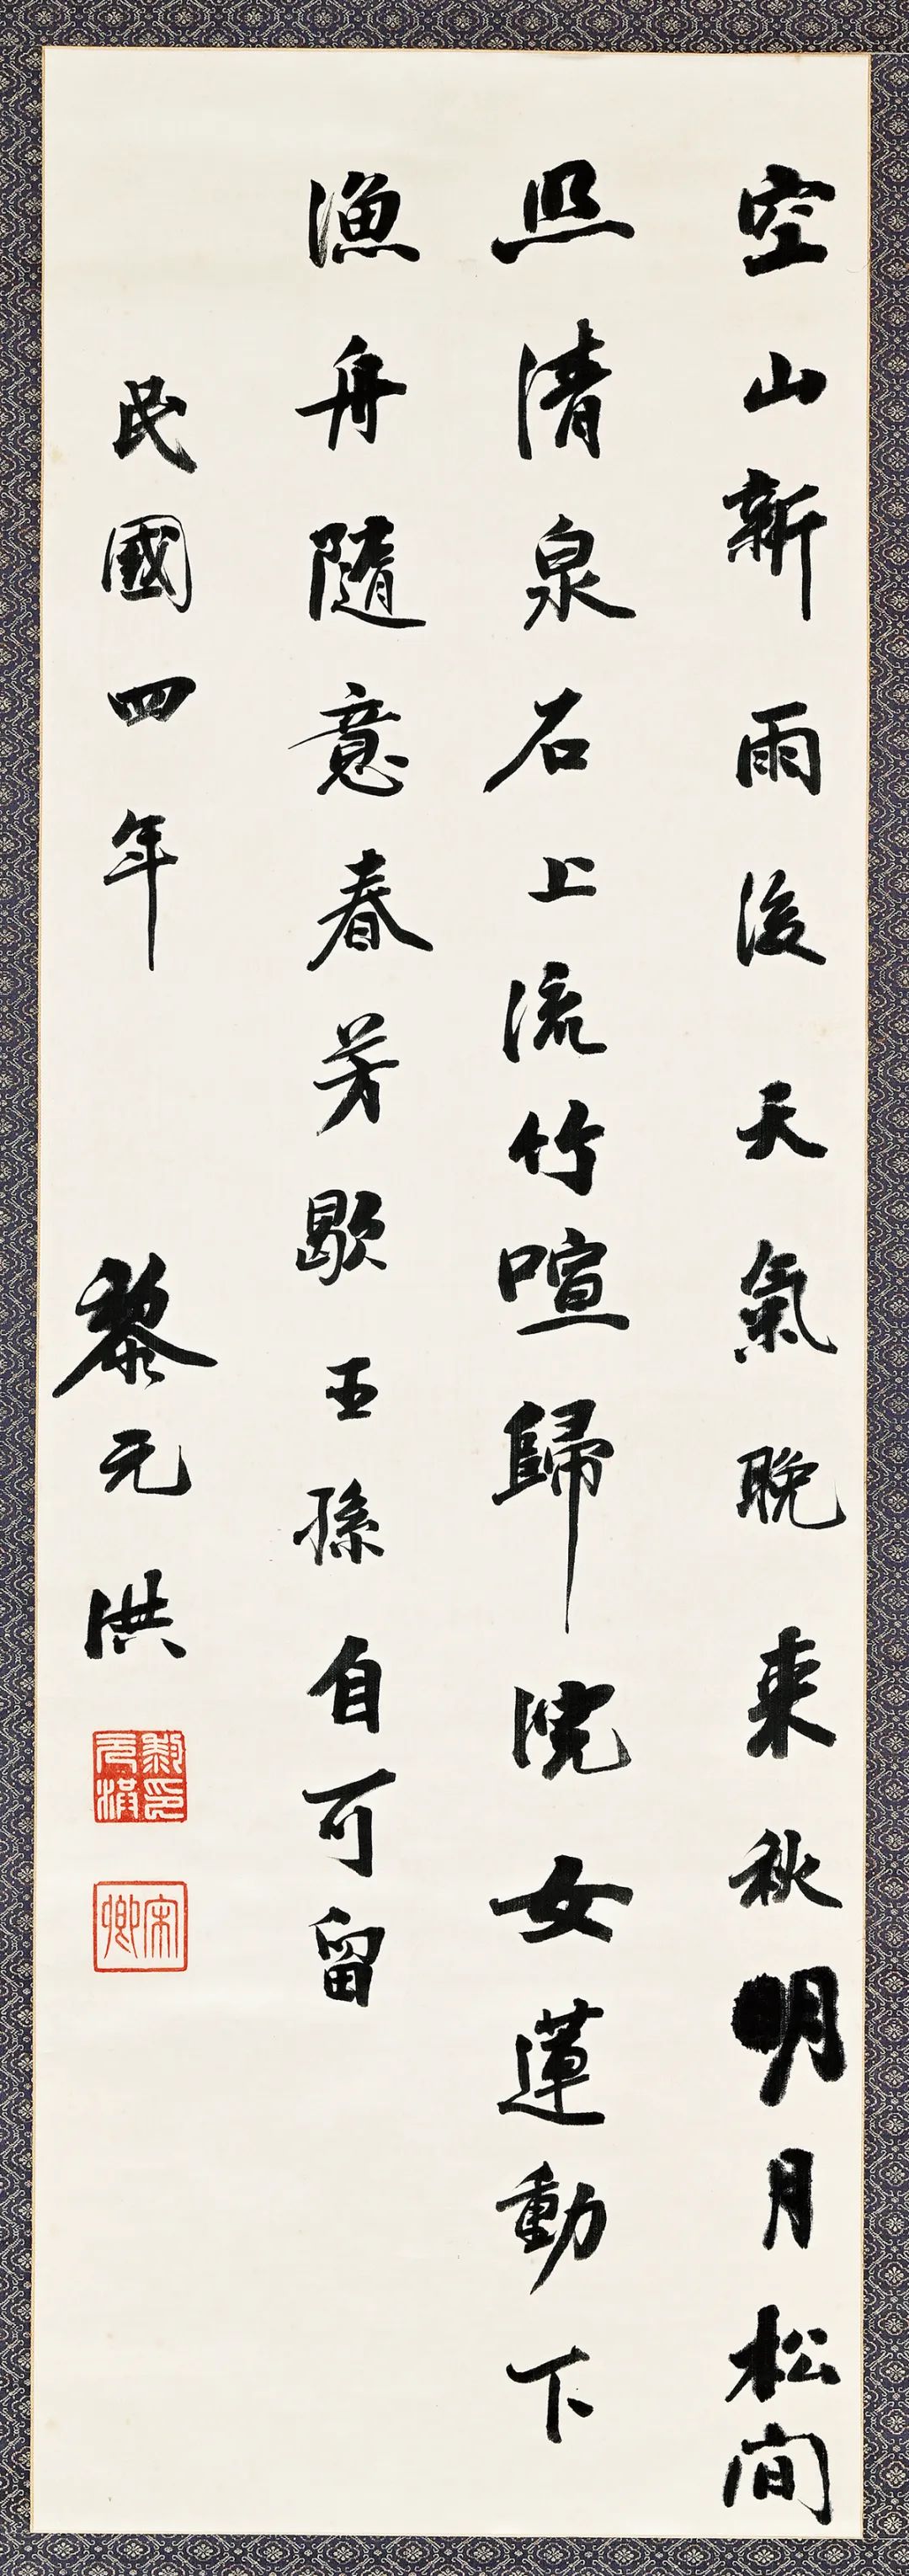 空山新雨後天氣晚来秋明月松間
照清泉石上流竹喧歸浣女蓮動下
漁舟隨意春芳歇王孫自可留
民國四年
黎元洪
黎元洪印
宋卿